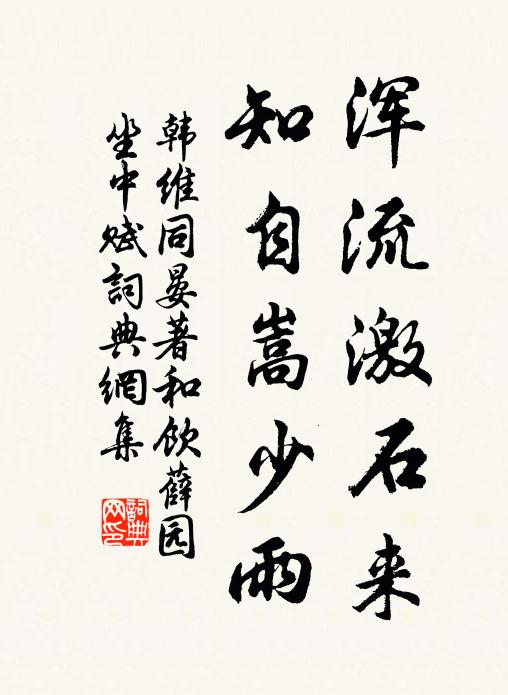 浑流激石来
知自嵩少雨
韩维同晏著和饮薛园
坐中赋词典網集
詞典
网印